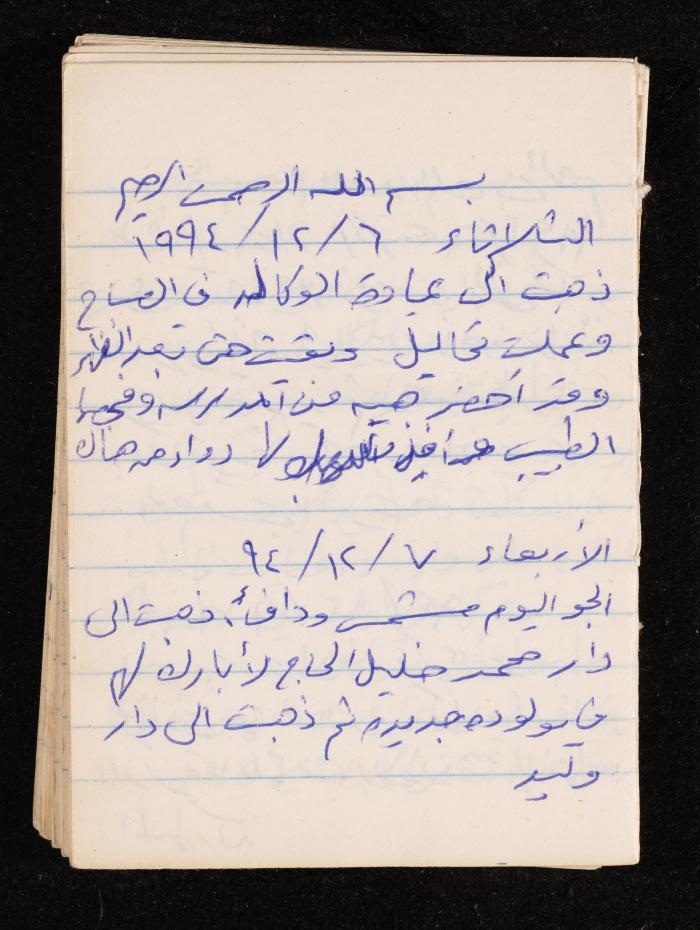 بسم الله الرحمن الرحيم
الثلاثاء ٦/١٢/١٩٩٤
ذهبت الى عيادة الوكاله في الصباح
وعملت تحاليل وبقيت حتى بعد الظهر
وقد أحضر من المدرسه وفحصها
الطبيب لها دواء من هناك
الأربعاء ٧/١٢/٩٤
الجو اليوم مشمس ودافئ. ذهبت الى
دار محمد خليل الحاج لأبارك لهم
في مولوده جديده ثم ذهبت الى دار
وليد